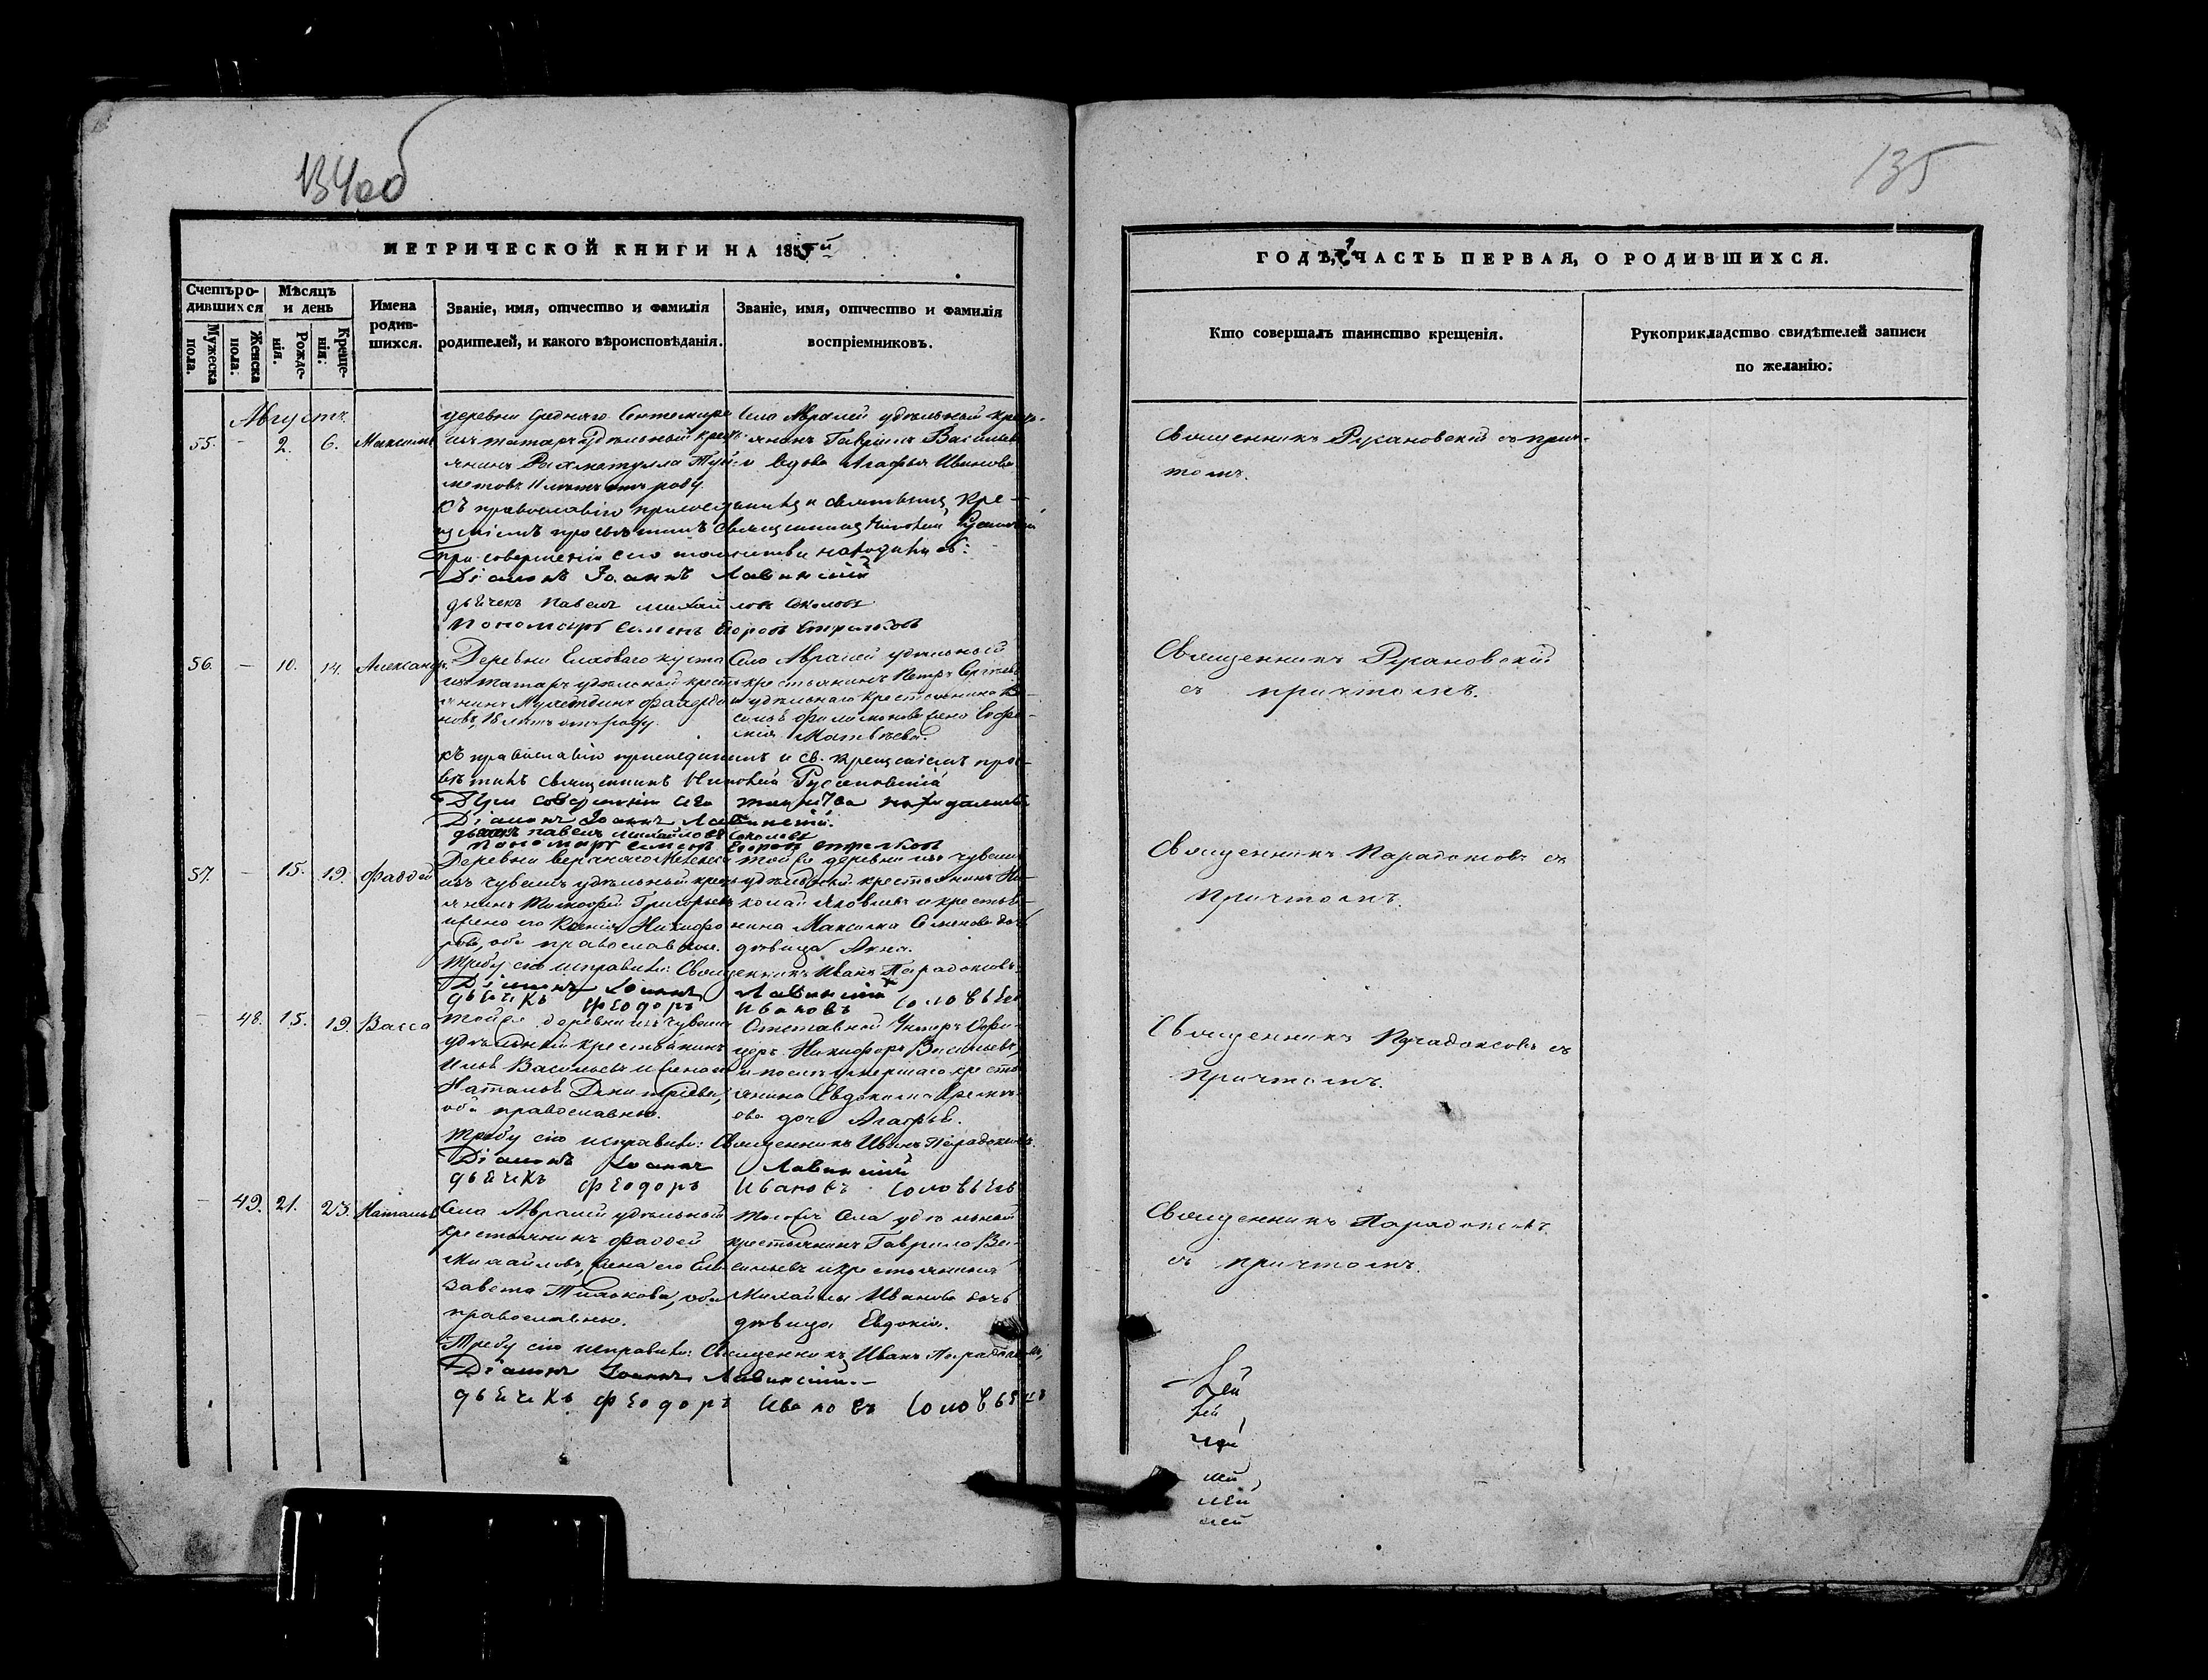 134об
135
МЕТРИЧЕСКОЙ КНИГИ НА 1855й
ГОДЪ, ЧАСТЬ ПЕРВАЯ, О РОДИВШИХСЯ.
Счетъ родившихся
Мѣсяцъ и день
Мужеска пола.
Женска пола.
Рожденія.
Крещенія:
Имена родившихся.
Званіе, имя, отчество и фамилія
родителей, и какого вѣроисповѣданія.
Званіе, имя, отчество и фамилія
воспріемниковъ.
Кто совершалъ таинство крещенія.
Рукоприкладство свидѣтелей записи
по желанію:
Августъ
55. - 2. 6. Максимъ
деревни Средняго
изъ татаръ удѣльный крестьянинъ Рахматулла
метовъ 11 лѣтъ отъ роду.
Села Авралей удѣльный крестьянинъ Гаврилъ Васильевъ
и вдова Агафья Иванова
Священникъ Русановскій съ причтомъ.
къ православію присоединилъ и святымъ крещеніемъ просвѣтилъ священникъ Русановскій
При совершеніи сего таинства находились:
Діаконъ Іоаннъ Лавинскій
дьячекъ Павелъ Михайловъ Соколовъ
Пономарь Симеонъ Егоровъ Стрѣлковъ
56. - 10. 14. Александръ.
Деревни Елховаго куста
изъ татаръ удѣльный крестьянинъ
новъ, 18 лѣтъ отъ роду.
Село Авралей удѣльной
крестьянинъ Петръ Сергѣевъ
и удѣльнаго крестьянина
жена
Матвѣева.
Священникъ Русановскій
съ причтомъ.
къ православію присоединилъ и св. крещеніемъ просвѣтилъ священникъ Русановскій
При совершеніи сего таинства находились
Діаконъ Іоаннъ Лавинскій.
дьячекъ Павелъ Михайловъ Соколовъ
Пономарь Симеонъ Егоровъ Стрѣлковъ
57. - 15. 19. Фаддей
Деревни Верхняго
изъ чувашъ удѣльный крестьянинъ Тимофей Григорьевъ
жена его Ксенія Никифорова, оба православные.
той же деревни изъ чувашъ
удѣльный крестьянинъ Николай Яковлевъ и крестьянина Максима Семенова дочь
дѣвица Анна.
Священникъ Парадоксовъ съ
причтомъ.
Требу сію исправили: Священникъ Иванъ Парадоксовъ.
Діаконъ Іоаннъ Лавинскій
дьячекъ Феодоръ Ивановъ Соловьевъ
- 48. 15. 19. Васса
Той же деревни изъ чувашъ
удѣльный крестьянинъ
Илья Васильевъ и жена
Наталья Димитріева,
оба православные.
Отставной Унтеръ Офицеръ Никифоръ Васильевъ,
и послѣ умершаго крестьянина Евдокима
дочь Агафья.
Священникъ Парадоксовъ съ
причтомъ.
Требу сію исправили: Священникъ Иванъ Парадоксовъ.
Діаконъ Іоаннъ Лавинскій
дьячекъ Феодоръ Ивановъ Соловьевъ
- 49. 21. 23. Наталья
Села Авралей удѣльный
крестьянинъ Фаддей
Михайловъ, жена его Елизавета
оба
православные.
Того же села удѣльный
крестьянинъ Гаврило Васильевъ и крестьянина
Михайлы Иванова дочь
дѣвица Евдокія.
Священникъ Парадоксовъ
съ причтомъ.
Требу сію исправили: Священникъ Иванъ Парадоксовъ,
Діаконъ Іоаннъ Лавинскій.
дьячекъ Феодоръ Ивановъ Соловьевъ